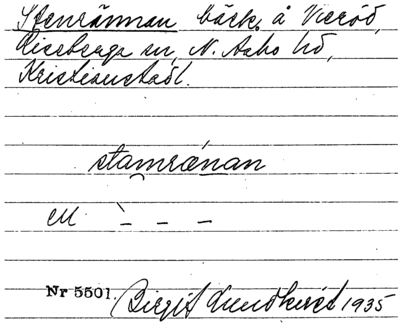 Stenrännan bäck, å Vieröd,
Riseberga sn, N. Åsbo hd,
Kristianstads l.
stamrænan
en ` – – –
Nr 5501. Birgit Lundkvist 1935